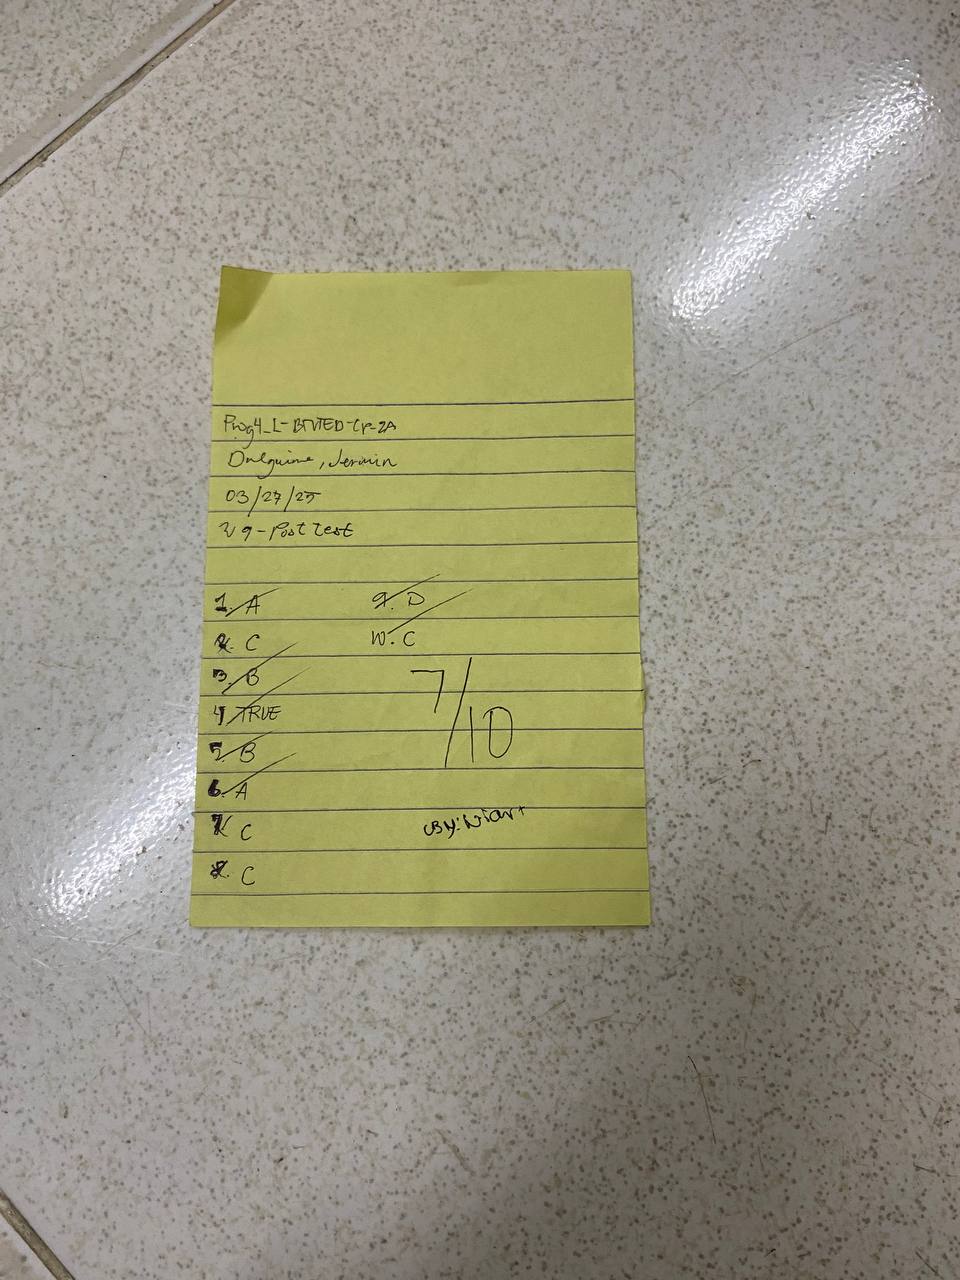 Prog4_L-BTVTED-CP-2A
Dalguime, Jermin
03/27/25
W9-Post Test
1. A
2. C
3. B
4 TRUE
5. B
6. A
7. C
8. C
9. D
10. C
7/10
By: